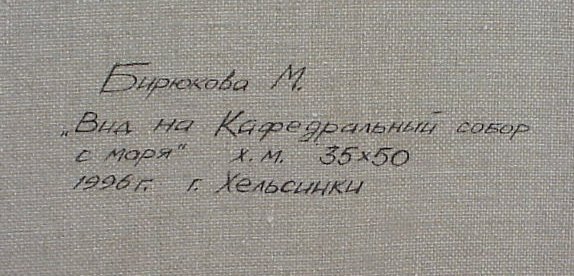 Бирюкова М.
„Вид на Кафедральный собор
с моря" х.м. 35×50
1996г. г. Хельсинки